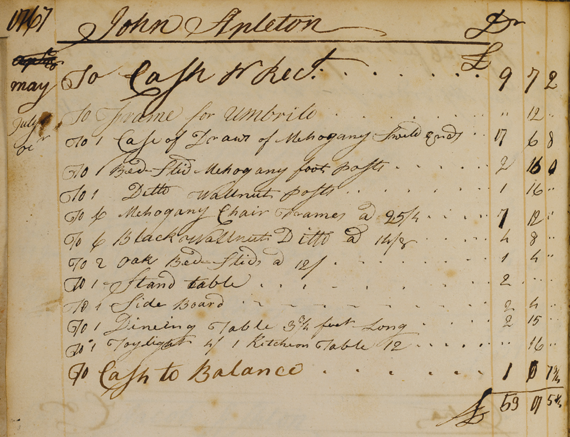 1767 John Apleton Dr
£
may To Cash & Rect. 9 7 2
To Frame for Umbrilo " 12 "
July To 1 Case of Draws of Mehogany Sweld Ends 17 6 8
To 1 Bed Stid Mehogany foot posts 2 16 0
To 1 Ditto Wallnut posts 1 16 "
To 6 Mehogany Chair Frames a 25/4 7 12 "
To 6 Black Wallnut Ditto a 14/8 4 8 "
To 2 Oak Bed Stids a 12/ 1 4 "
To 1 Stand table 2
To 1 Side Board 2 4 "
To 1 Dineing Table 3¾ feet Long 2 15 "
To 1 4/ 1 Kitchen Table 12 " 16 "
To Cash to Balance 1
£ 53